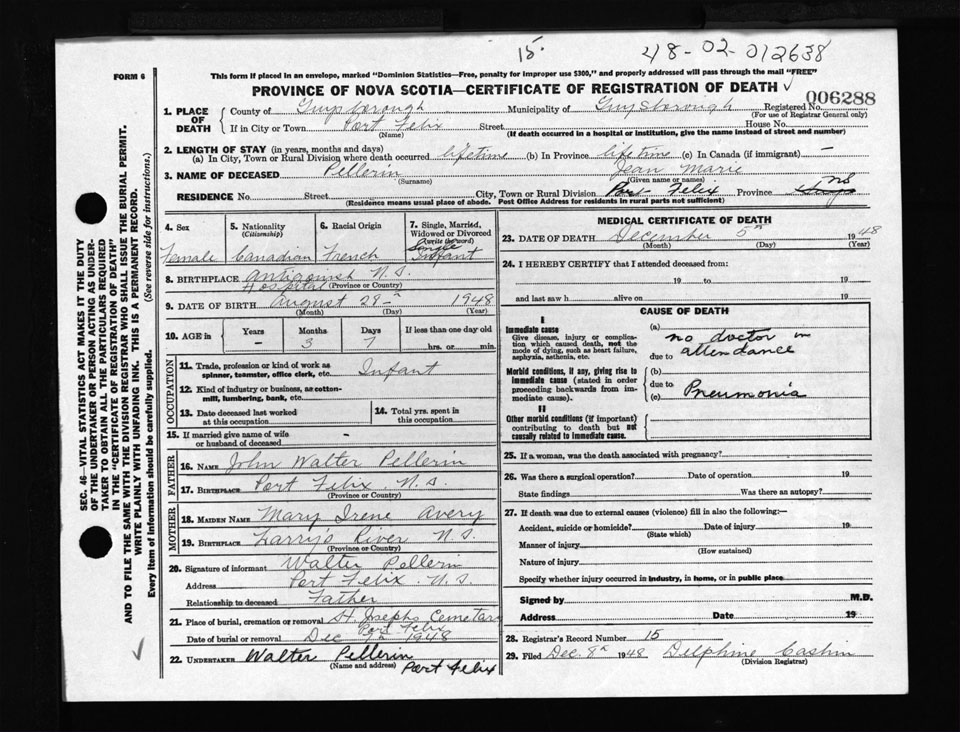 15. 48-02-012638
FORM 6
This form if placed in an envelope, marked "Dominion Statistics—Free, penalty for improper use $300," and properly addressed will pass through the mail "FREE"
PROVINCE OF NOVA SCOTIA—CERTIFICATE OF REGISTRATION OF DEATH
006288
1. PLACE OF DEATH
County of Guysborough Municipality of Guysborough Registered No.
(For use of Registrar General only)
If in City or Town Port Felix Street House No.
(Name) (If death occurred in a hospital or institution, give the name instead of street and number)
2. LENGTH OF STAY (in years, months and days)
(a) In City, Town or Rural Division where death occurred lifetime (b) In Province lifetime (c) In Canada (if immigrant) —
3. NAME OF DECEASED Pellerin Jean Marie
(Surname) (Given name or names)
RESIDENCE No. Street City, Town or Rural Division Port Felix Province NS
(Residence means usual place of abode. Post Office Address for residents in rural parts not sufficient)
4. Sex
Female
5. Nationality
(Citizenship)
Canadian
6. Racial Origin
French
7. Single, Married, Widowed or Divorced
(write the word)
Single
Infant
8. BIRTHPLACE Antigonish N.S.
Hospital (Province or Country)
9. DATE OF BIRTH August 28th 1948
(Month) (Day) (Year)
10. AGE in
Years Months Days If less than one day old
— 3 7 hrs. or min.
OCCUPATION
11. Trade, profession or kind of work as spinner, teamster, office clerk, etc. Infant
12. Kind of industry or business, as cotton-mill, lumbering, bank, etc.
13. Date deceased last worked at this occupation
14. Total yrs. spent in this occupation
15. If married give name of wife or husband of deceased -
FATHER
16. NAME John Walter Pellerin
17. BIRTHPLACE Port Felix N.S.
(Province or Country)
MOTHER
18. MAIDEN NAME Mary Irene Avery
19. BIRTHPLACE Larry's River N.S.
(Province or Country)
20. Signature of informant Walter Pellerin
Address Port Felix N.S.
Relationship to deceased Father
21. Place of burial, cremation or removal St. Josephs Cemetary
Port Felix
Date of burial or removal Dec 7th 1948
22. UNDERTAKER Walter Pellerin
(Name and address) Port Felix
MEDICAL CERTIFICATE OF DEATH
23. DATE OF DEATH December 5th 1948
(Month) (Day) (Year)
24. I HEREBY CERTIFY that I attended deceased from:
19 to 19
and last saw h alive on 19
CAUSE OF DEATH
I
Immediate cause
Give disease, injury or complication which caused death, not the mode of dying, such as heart failure, asphyxia, asthenia, etc.
(a) no doctor in
due to attendance
Morbid conditions, if any, giving rise to immediate cause (stated in order proceeding backwards from immediate cause).
(b)
due to
(c) Pneumonia
II
Other morbid conditions (if important) contributing to death but not causally related to immediate cause.
25. If a woman, was the death associated with pregnancy?
26. Was there a surgical operation? Date of operation 19
State findings Was there an autopsy?
27. If death was due to external causes (violence) fill in also the following:—
Accident, suicide or homicide? Date of injury 19
(State which)
Manner of injury
(How sustained)
Nature of injury
Specify whether injury occurred in industry, in home, or in public place
Signed by M.D.
Address Date 19
28. Registrar's Record Number 15
29. Filed Dec. 8th 1948 Delphine Cashin
(Division Registrar)
SEC. 46—VITAL STATISTICS ACT MAKES IT THE DUTY
OF THE UNDERTAKER OR PERSON ACTING AS UNDER-
TAKER TO OBTAIN ALL THE PARTICULARS REQUIRED
IN THE "CERTIFICATE OF REGISTRATION OF DEATH"
AND TO FILE THE SAME WITH THE DIVISION REGISTRAR WHO SHALL ISSUE THE BURIAL PERMIT.
WRITE PLAINLY WITH UNFADING INK. THIS IS A PERMANENT RECORD.
Every item of information should be carefully supplied. (See reverse side for instructions.)